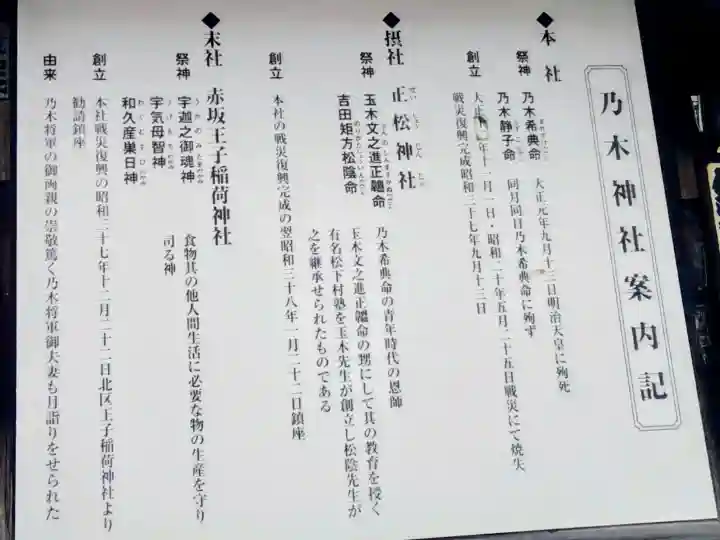 乃木神社案内記
◆本社
祭神 乃木希典命 大正元年九月十三日明治天皇に殉死
乃木静子命 同月同日乃木希典命に殉ず
創立 大正 年十一月一日・昭和二十年五月二十五日戦災にて焼失
戦災復興完成昭和三十七年九月十三日
◆摂社 正松神社
祭神 玉木文之進正韞命 乃木希典命の青年時代の恩師
吉田矩方松陰命 玉木文之進正韞命の甥にして其の教育を授く
有名松下村塾を玉木先生が創立し松陰先生が
之を継承せられたものである
創立 本社の戦災復興完成の翌昭和三十八年一月二十二日鎮座
◆末社 赤坂王子稲荷神社
祭神 宇迦之御魂神 食物其の他人間生活に必要な物の生産を守り
宇気母智神 司る神
和久産巣日神
創立 本社戦災復興の昭和三十七年十二月二十二日北区王子稲荷神社より
勧請鎮座
由来 乃木将軍の御両親の崇敬篤く乃木将軍御夫妻も月詣りをせられた